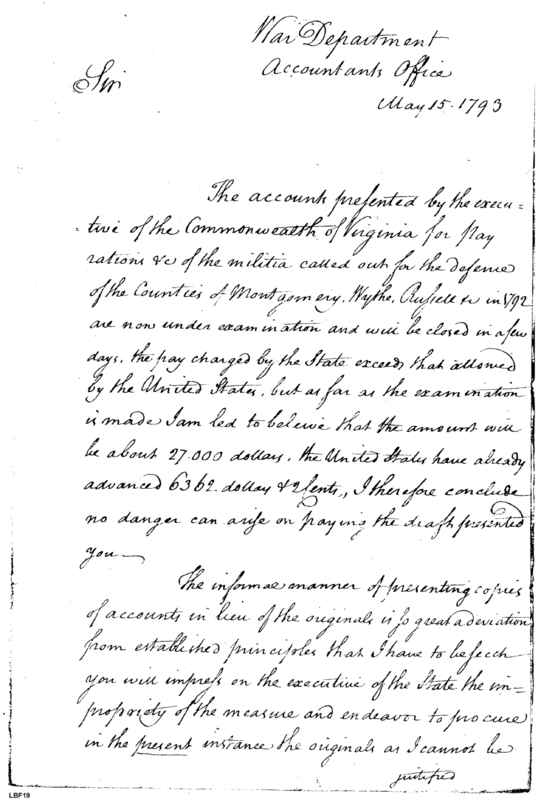 War Department
Accountants Office
Sir
May 15. 1793
The accounts presented by the execu=
=tive of the Commonwealth of Virginia for pay
rations &c of the militia called out for the defense
of the Counties of Montgomery, Wythe, Russell &c in 1792
are now under examination and will be closed in a few
days, the pay charged by the State exceeds that allowed
by the United States, but as far as the examination
is made I am led to beleive that the amount will
be about 27.000 dollars, the United States have already
advanced 6362. dollars & 2 Cents,, I therefore conclude
no danger can arise on paying the draft presented
you —
The informal manner of presenting copies
of accounts in lieu of the originals is so great a deviation
from established principles that I have to beseech
you will impress on the executive of the State the im=
propriety of the measure and endeavor to procure
in the present instance the originals as I cannot be
justified
LBF19